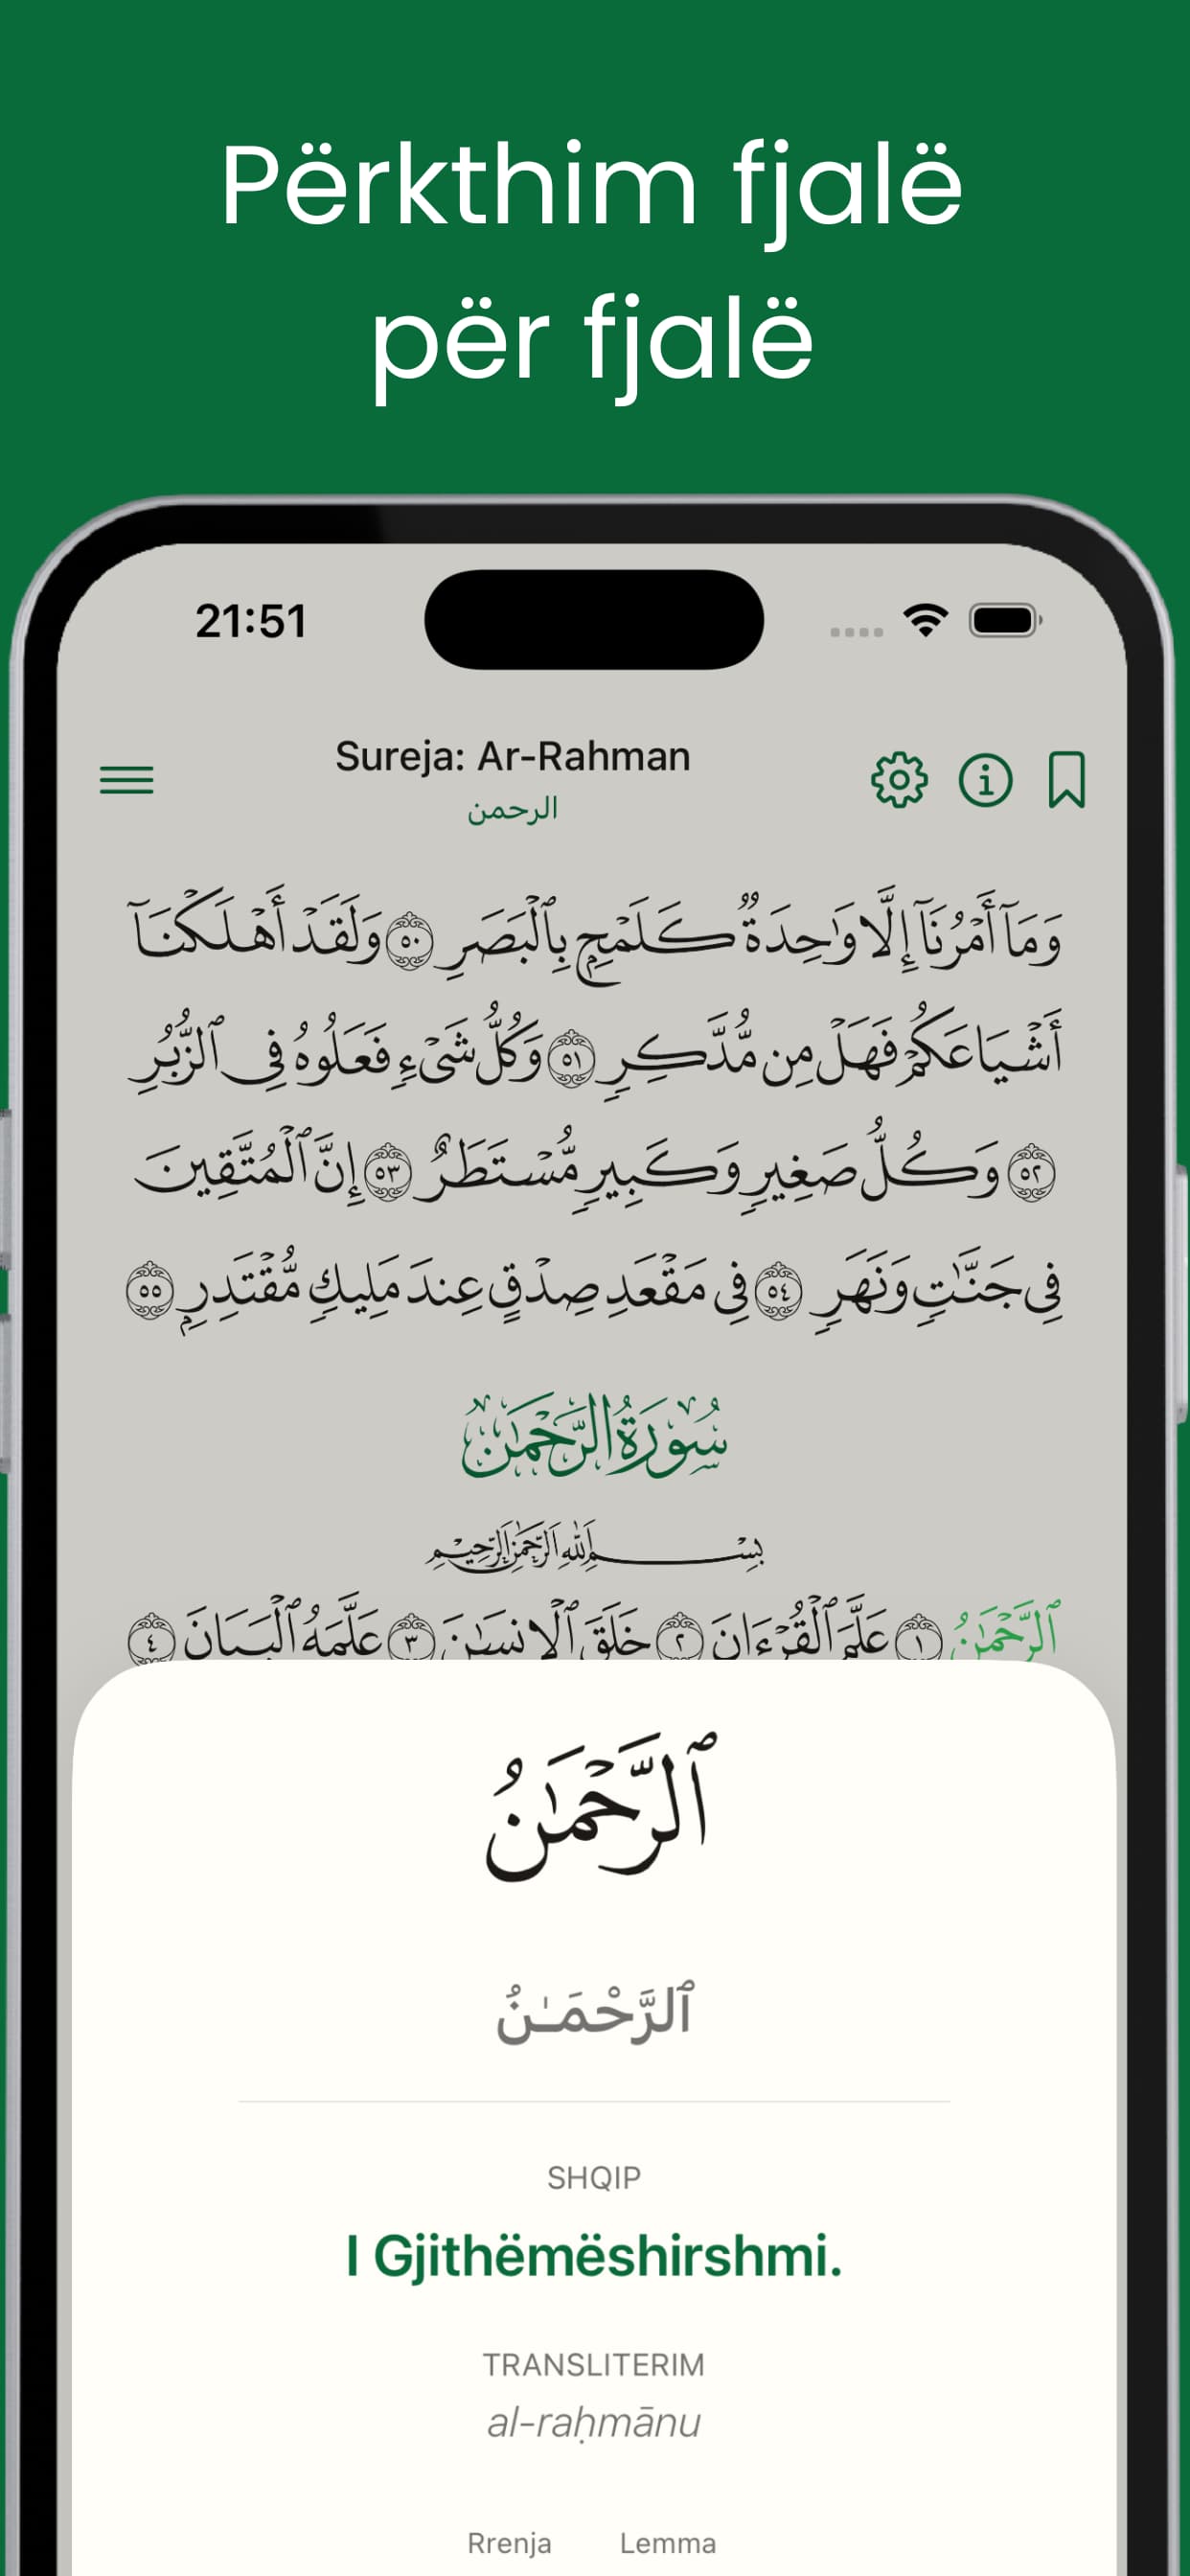 Përkthim fjalë
për fjalë
21:51
Sureja: Ar-Rahman
الرحمن
وَمَآ أَمْرُنَآ إِلَّا وَٰحِدَةٌ كَلَمْحٍۭ بِٱلْبَصَرِ ٥٠ وَلَقَدْ أَهْلَكْنَآ
أَشْيَاعَكُمْ فَهَلْ مِن مُّدَّكِرٍ ٥١ وَكُلُّ شَىْءٍ فَعَلُوهُ فِى ٱلزُّبُرِ
٥٢ وَكُلُّ صَغِيرٍ وَكَبِيرٍ مُّسْتَطَرٌ ٥٣ إِنَّ ٱلْمُتَّقِينَ
فِى جَنَّٰتٍ وَنَهَرٍ ٥٤ فِى مَقْعَدِ صِدْقٍ عِندَ مَلِيكٍ مُّقْتَدِرٍۭ ٥٥
سُورَةُ الرَّحْمَٰن
بِسْمِ ٱللَّهِ ٱلرَّحْمَٰنِ ٱلرَّحِيمِ
ٱلرَّحْمَٰنُ ١ عَلَّمَ ٱلْقُرْءَانَ ٢ خَلَقَ ٱلْإِنسَٰنَ ٣ عَلَّمَهُ ٱلْبَيَانَ ٤
ٱلرَّحْمَٰنُ
ٱلرَّحْمَـٰنُ
SHQIP
I Gjithëmëshirshmi.
TRANSLITERIM
al-raḥmānu
Rrenja Lemma